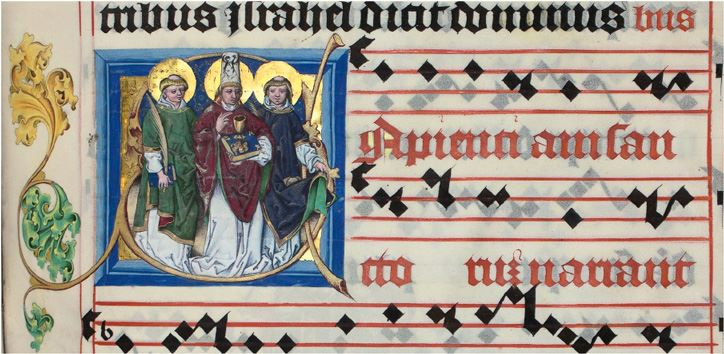 tribus Jsrahel dicit dominus bus
SApienti am san
cto rũ narrant